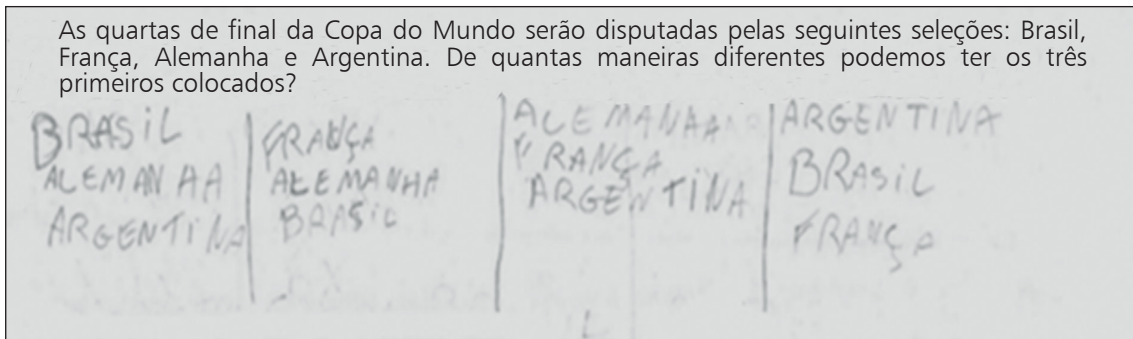 As quartas de final da Copa do Mundo serão disputadas pelas seguintes seleções: Brasil,
França, Alemanha e Argentina. De quantas maneiras diferentes podemos ter os três
primeiros colocados?
BRASIL
ALEMANHA
ARGENTINA
FRANÇA
ALEMANHA
BRASIL
ALEMANHA
FRANÇA
ARGENTINA
ARGENTINA
BRASIL
FRANÇA